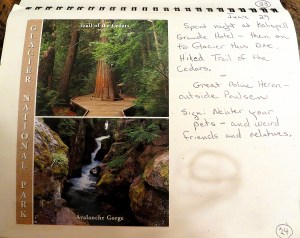 23
June 29
Spent night at Kalispell
Grande Hotel - then on
to Glacier thus Dre.
Hiked Trail of the
Cedars.
Great Blue Heron -
outside Poulsen
Sign: Neuter your
pets - and weird
friends and relatives.
24
GLACIER NATIONAL PARK
Trail of the Cedars
Avalanche Gorge